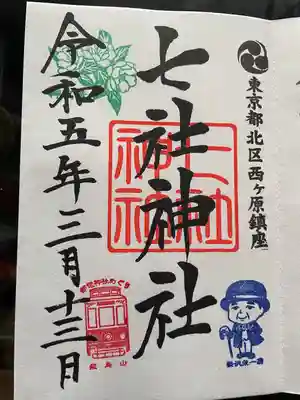 東京都北区西ヶ原鎮座
七社神社
七社神社
令和五年三月十三日
飛鳥山
渋沢栄一翁